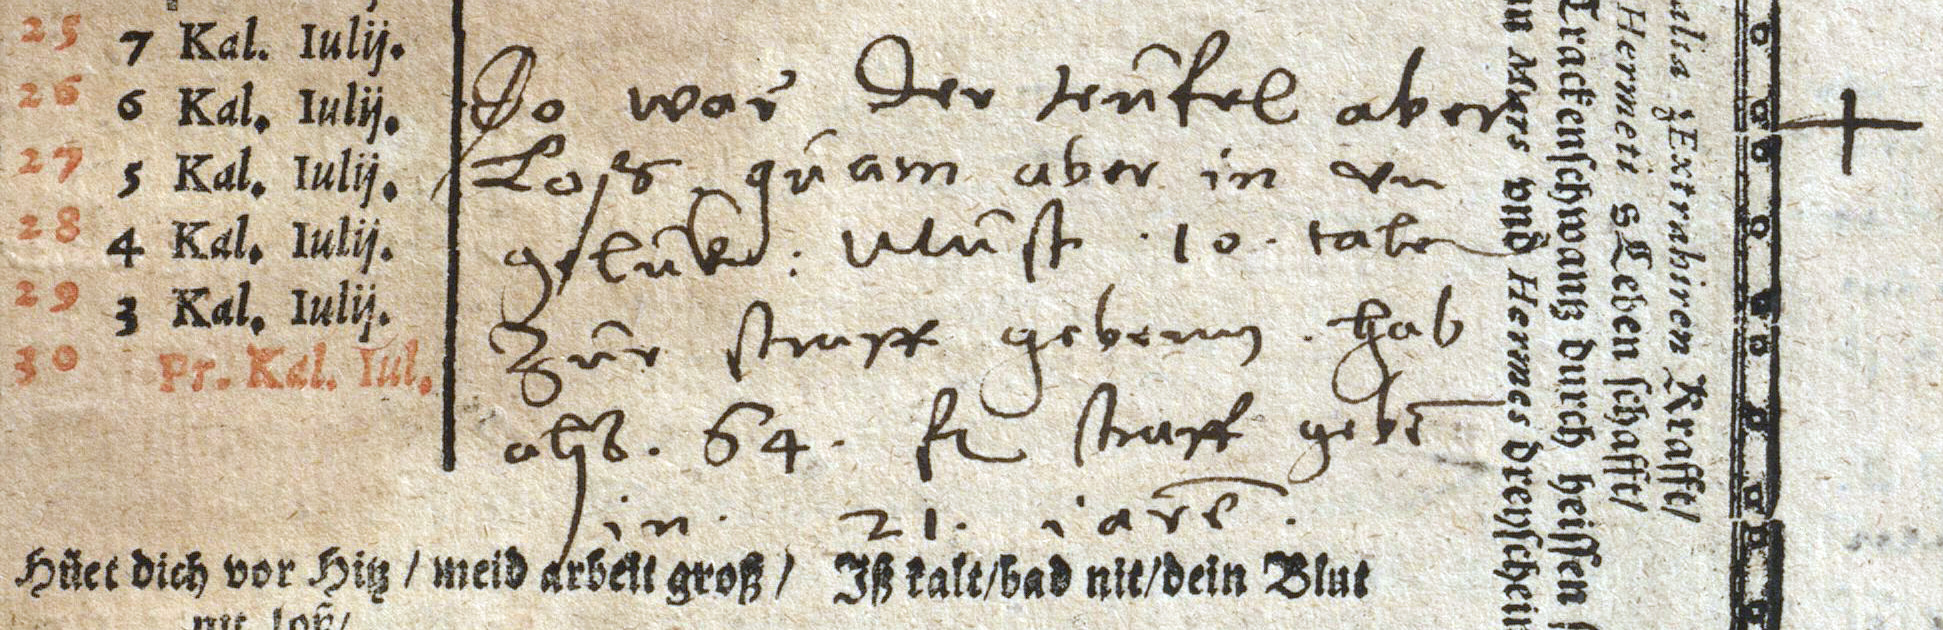 25 7 Kal. Iulij.
26 6 Kal. Iulij.
27 5 Kal. Iulij.
28 4 Kal. Iulij.
29 3 Kal. Iulij.
30 Pr. Kal. Iul.
Do war der teufel aber
Loß quam aber in vn
geluk : Must . 10 . tale
zur straff gebenn . hab
alß . 64 . fl straff gebē
in . 21 . iarē .
Hüet dich vor Hitz / meid arbeit groß / Iß kalt/bad nit/dein Blut
nit loß/
alia zExtrahiren Krafft/
Hermeti sLeben schafft/
Trackenschwantz durch heissen
Mars vnd Hermes dreyschein